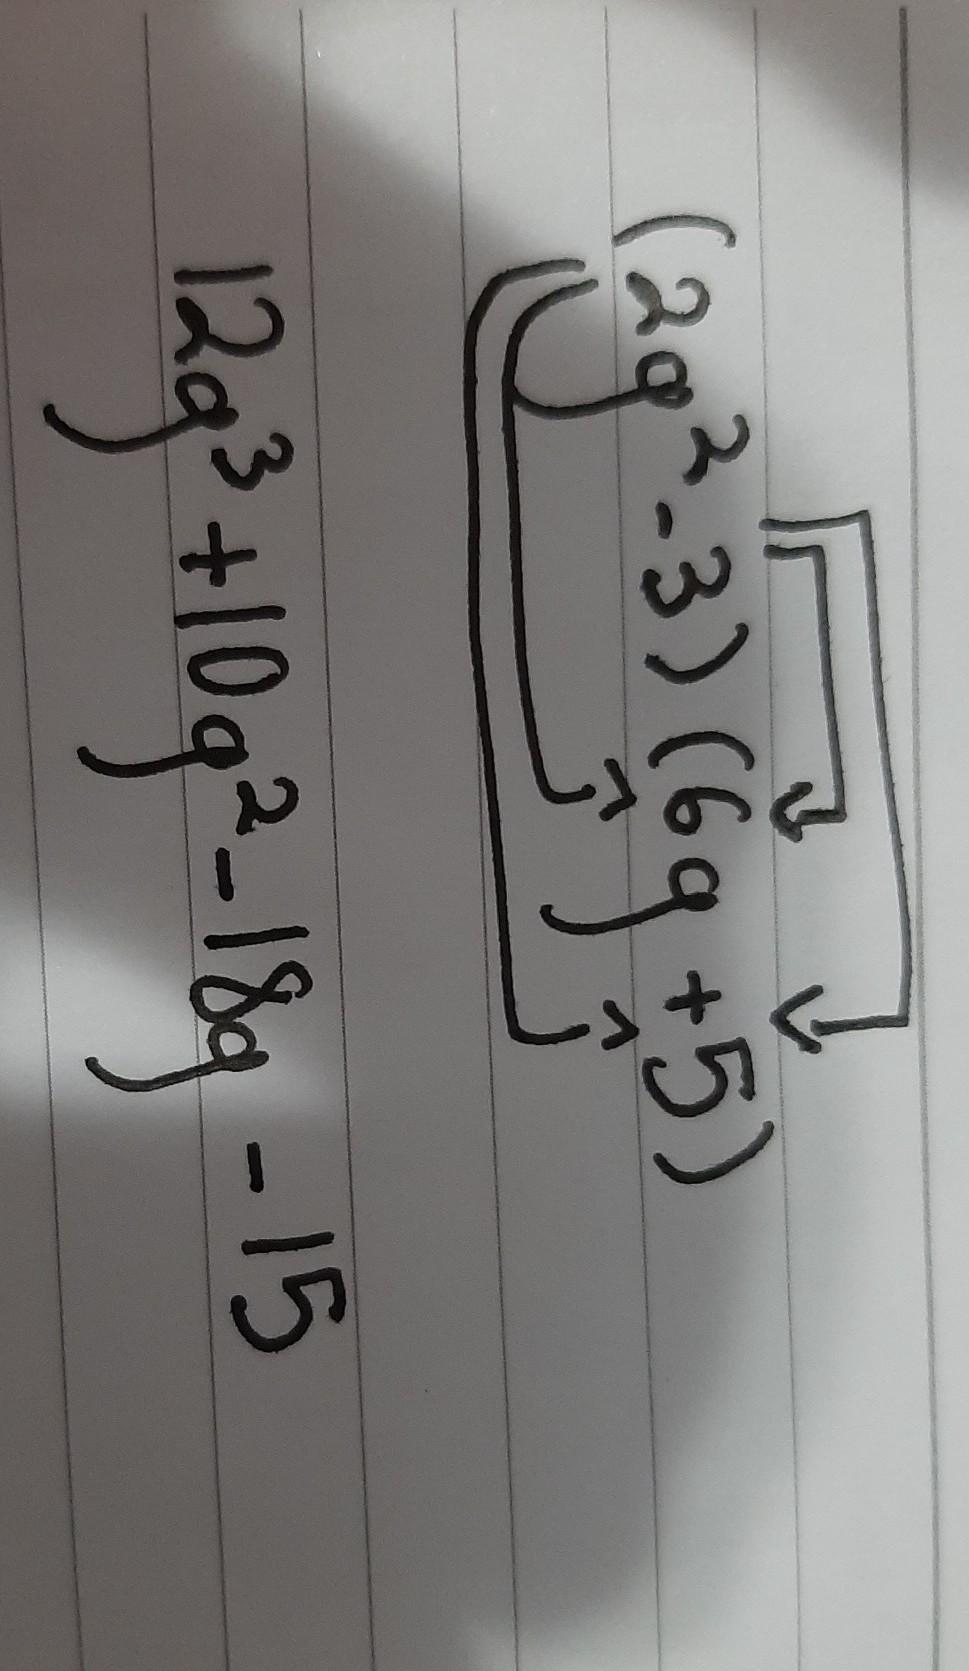 (2g² - 3) (6g + 5)
12g³ + 10g² - 18g - 15